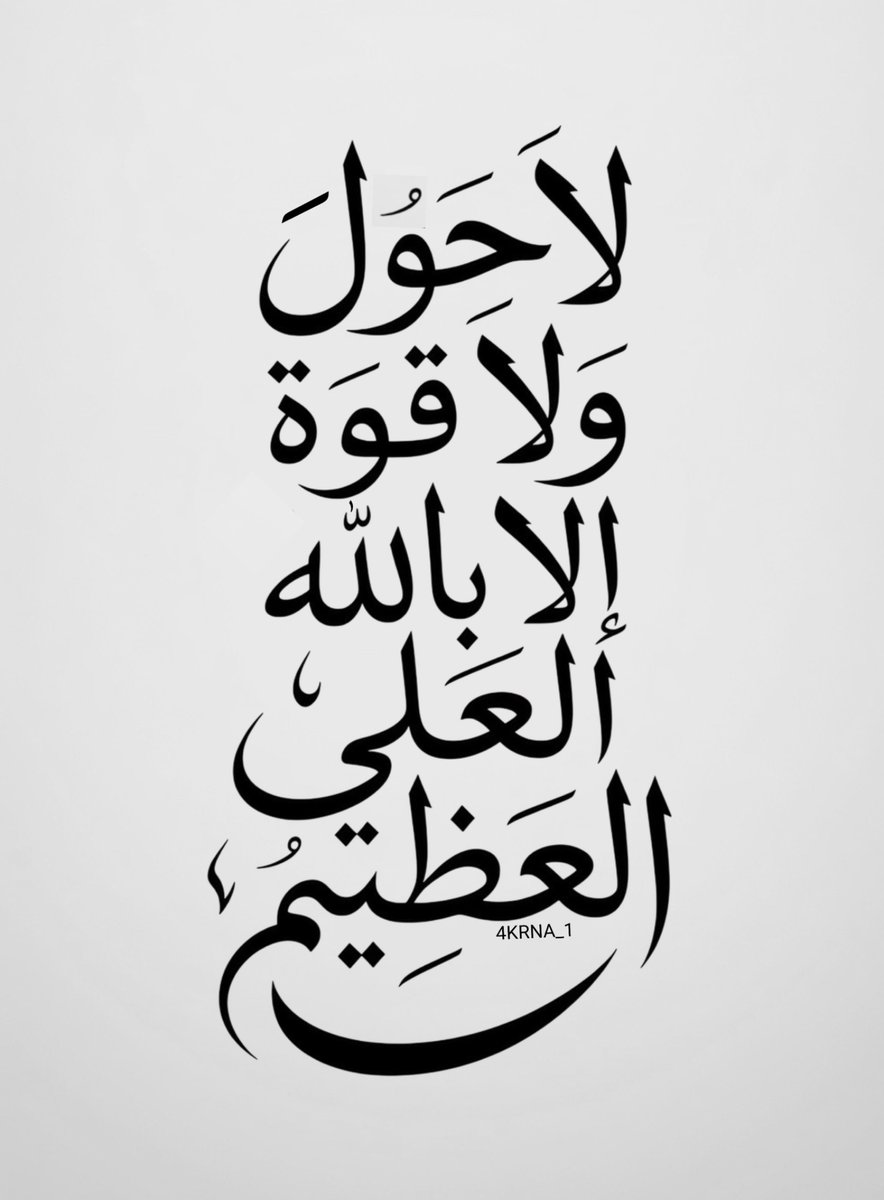 لَا حَوُلَ
وَلَا قوَة
إلا باللّه
العَلي
العَظِيمُ
4KRNA_1